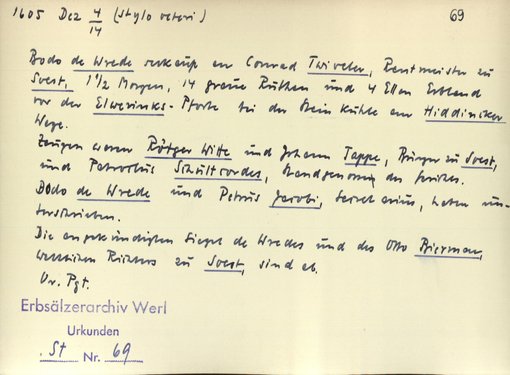 1605 Dez 4/14 (stylo veteri)
69
Bodo de Wrede verkauft an Conrad Twiveler, Rentmeister zu
Soest, 1 1/2 Morgen, 14 Ruthen und 4 Ellen Erbland
vor der Elverinks-Pforte bei der Steinkühle am Hiddincker
Wege.
Zeugen waren Rötger Witte und Johann Tappe, Bürger zu Soest,
und Petroclus Schultvordes, Standgenossen des Gerichts.
Bodo de Wrede und Petrus Jacobi, Secretarius, haben un-
terschrieben.
Die angekündigten Siegel de Wredes und des Otto Bierman,
weltlichen Richters zu Soest, sind ab.
Or. Pgt.
Erbsälzerarchiv Werl
Urkunden
St Nr. 69